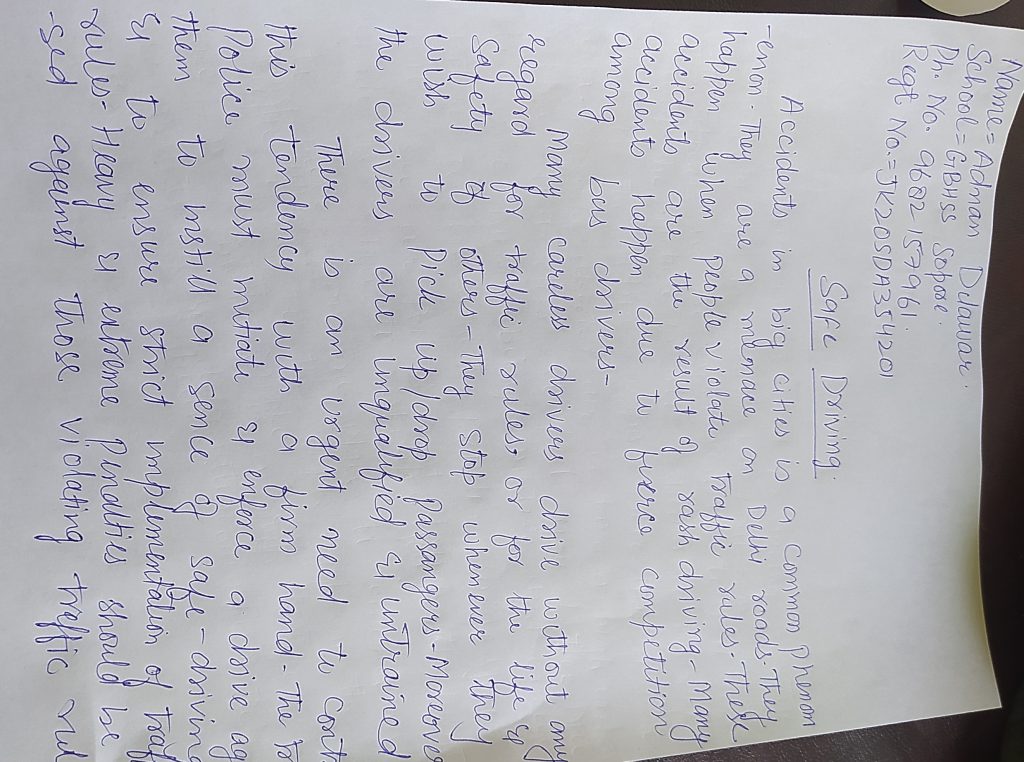 Name = Adnan Dilawar.
School = GBHSS Sopore.
Ph. No. 9682157961.
Regt No. = JK20SDA354201
Safe Driving.
Accidents in big cities is a common phenom
-enon. They are a menace on Delhi roads. They
happen when people violate traffic rules. These
accidents are the result of rash driving - Many
accidents happen due to fierce competition
among bus drivers -
Many careless drivers drive without any
regard for traffic rules, or for the life &
safety of others - They stop whenever they
wish to Pick up/drop Passangers - Moreove
the drivers are inqualified & untrained
There is an urgent need to cont
this tendency with a firm hand - The tr
Police must initiate & enforce a drive ag
them to instill a sence of safe - driving
& to ensure strict implementation of traf
rules - Heavy & extreme Penalties should be
-sed against those violating traffic rul